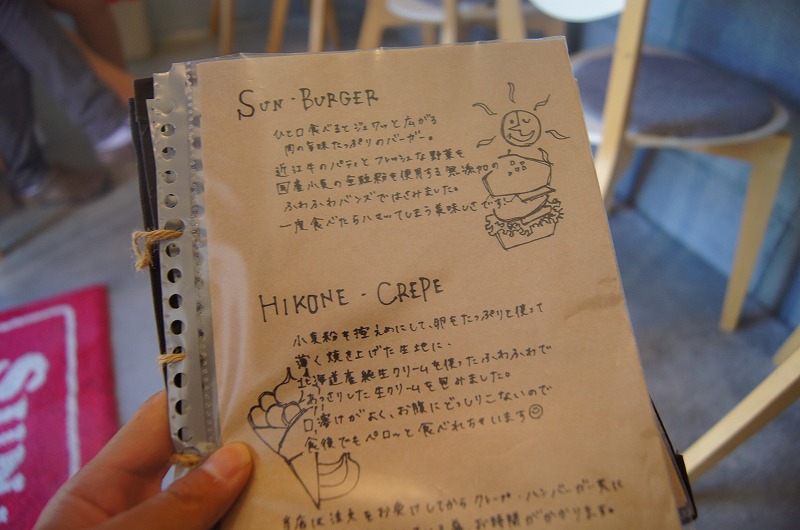 SUN-BURGER
ひと口食べるとジュワッと広がる
肉の旨味たっぷりのバーガー。
近江牛のパティとフレッシュな野菜を
国産小麦の全粒粉を使用する無添加の
ふわふわバンズではさみました。
一度食べたらハマってしまう美味しさです!
HIKONE-CREPE
小麦粉を控えめにして、卵をたっぷりと使って
薄く焼き上げた生地に、
北海道産純生クリームを使ったふわふわで
あっさりした生クリームを包みました。
口溶けがよく、お腹にどっしりこないので
食後でもペロッと食べれちゃいます
当店は注文をお受けしてからクレープ・ハンバーガー共に
お時間がかかります。
SUN